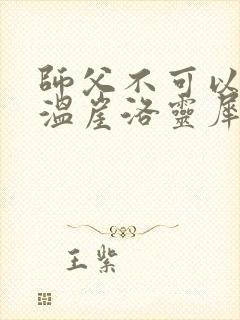 師父不可以
溫崖洛靈犀
王紫